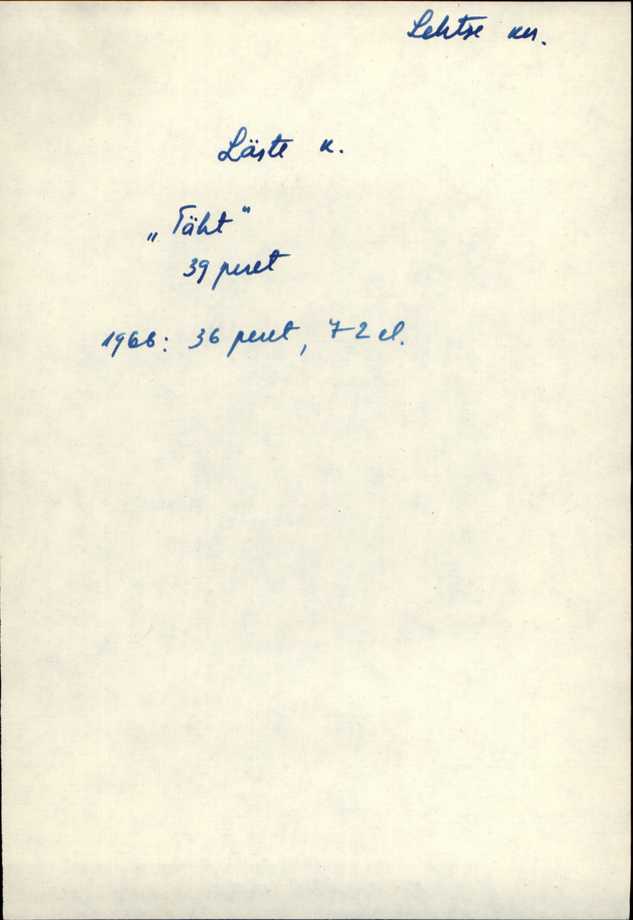 Lehtse kn.
Läste k.
„Täht"
39 peret
1966: 36 peret, 72 el.